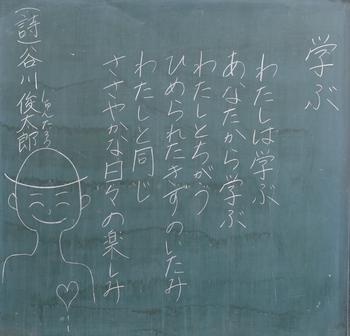 学ぶ
わたしは学ぶ
あなたから学ぶ
わたしとちがう
ひめられたきずのいたみ
わたしと同じ
ささやかな日々の楽しみ
(詩)谷川俊太郎
しゅんたろう